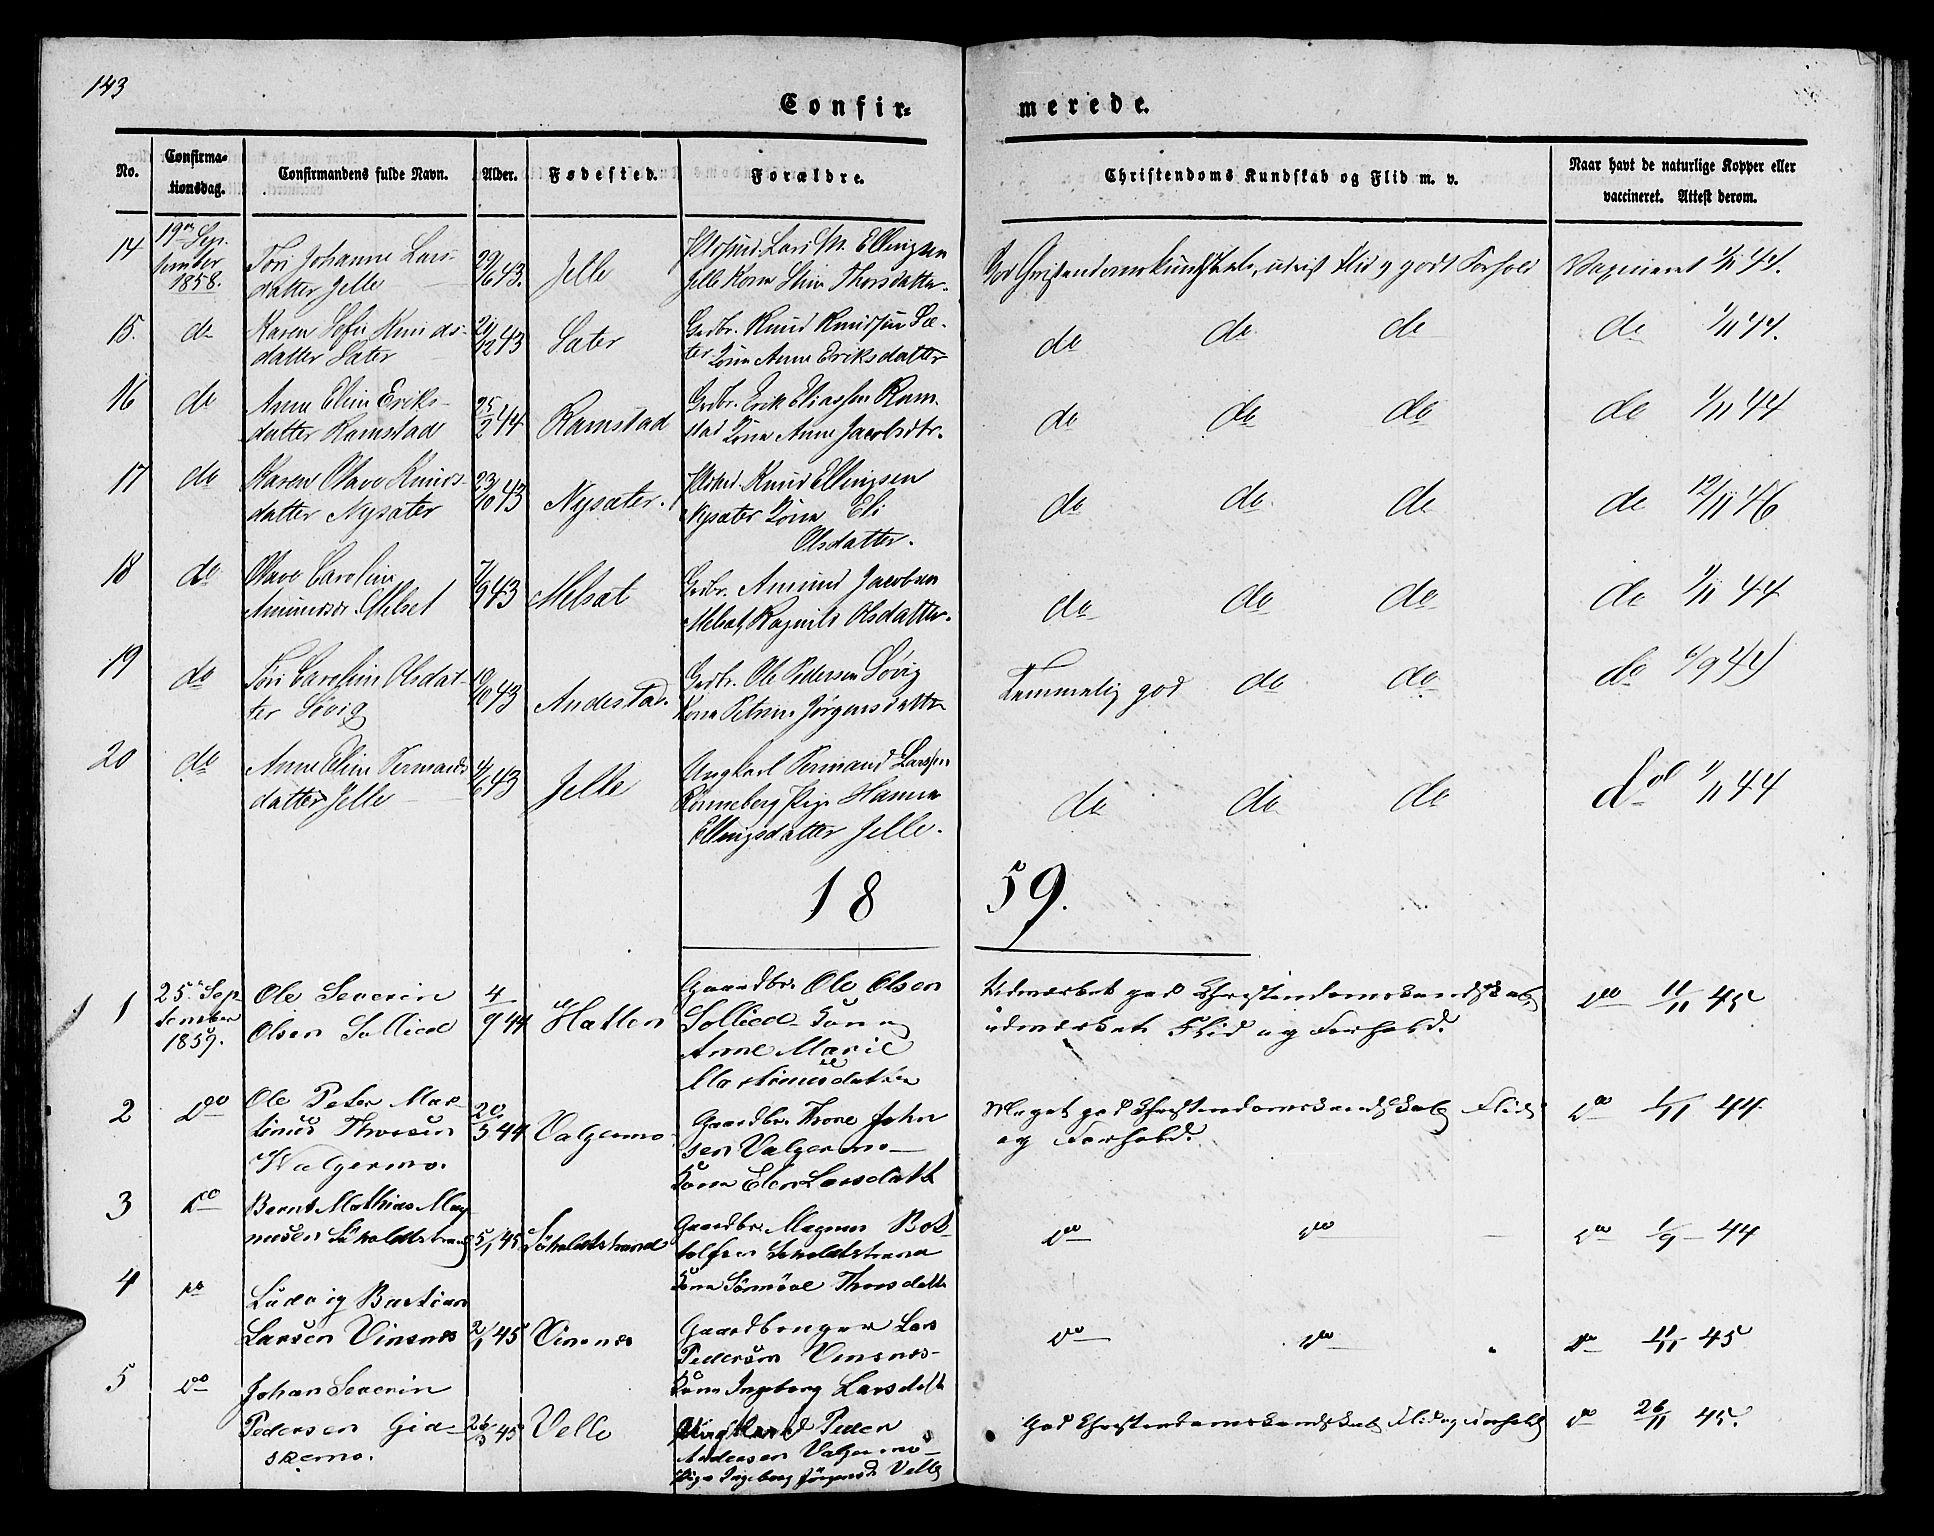 143
Confir=
merede.
No.
Confirma=
tionsdag.
Confirmandens fulde Navn.
Alder.
Fødested.
Forældre.
Christendoms Kundskab og Flid m. v.
Naar havt de naturlige Kopper eller
vaccineret. Attest derom.
14
19de Sep.
tember
1858.
Johanne Lars
datter Jelle
29/6 43.
Jelle
Lars M. Ellingsen
Jelle Kona Thorsdatter.
God Christendomskundskab, udvist Flid og godt Forhold
Vaccineret 1/11 44.
15.
do
Karen Knuds-
datter Sæter
21/12 43
Sæter
Grdbr. Knud Knudsen Sæ-
ter Kona Anne Eriksdatter
do do do
do 1/11 44.
16
do
Anne Elin Eriks-
datter Ramstad
25/2 44
Ramstad
Grdbr. Erik Eliassen Ram-
stad Kona Anne Jacobsdtr.
do do do
do 1/11 44
17
do
Karen Olave Knuds-
datter Nysæter
23/10 43
Nysæter.
Knud Ellingsen
Nysæter Kona Eli
Olsdatter.
do do do
do 12/11 46
18
do
Olave Caroline
Amundsdr. Melset
7/9 43
Melsæt
Grdbr. Amund Jacobsen
Melsæt, Ragnild Olsdatter.
do do do
do 1/11 44
19
do
Caroline Olsdat-
ter Søvig
10/10 43
Andestad.
Grdbr. Ole Pedersen Søvig
Kona Petrine Jørgensdatter
Temmelig god do do
do 6/9 44
20
do
Anne Elin Permands
datter Jelle
4/6 43
Jelle
Ungkarl Permand Larsen
Rønneberg Pige Hanna
Ellingsdatter Jelle.
do do do
do 1/11 44
18 59.
1
25de Sep
tember
1859.
Ole Severin
Olsen Sollied
4/9 44
Hatlen
Gaardbr. Ole Olsen
Sollied Kona
Anne Marie
Martinusdatter
Udmærket god Christendomskundskab,
udmærket Flid og Forhold.
do 11/11 45
2
do
Ole Peter Mar-
tinus Thoresen
Valgermo.
20/3 44
Valgermo
Gaardbr. Thore John
sen Valgermo
Kona Elen Larsdatt
Meget god Christendomskundskab, Flid
og Forhold.
do 1/11 44.
3
do
Bernt Mathias Mag
nusen Søholdtstrand
5/1 45
Søholdtstrand
Gaardbr. Magnus Bot
tolfsen Søholdtstrand
Kona Thorsdatt
do do
do 1/9 44
4
do
Ludvig Bastian
Larsen Vinsnes
2/1 45
Vinsnes
Gaardbruger Lars
Pedersen Vinsnes
Kona Ingeborg Larsdatt
do do
do 11/11 45
5
do
Johan Severin
Pedersen Gid-
skemo.
26/3 45
Velle
Ungkarl Peder
Andersen Valgermo
Pige Ingeborg Jørgensd. Velle
God Christendomskundskab, Flid og Forhold
do 26/11 45.